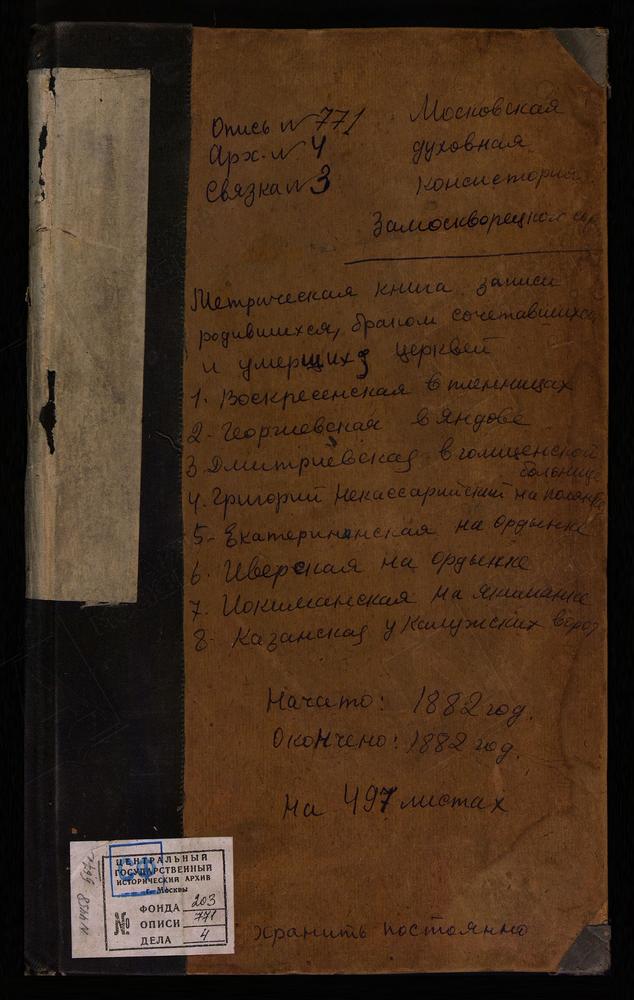 Опись N 771
Арх. N 4
Связка N 3
Московская
духовная
Консистория
Замоскворецком
Метрическая книга записи
родившихся, браком сочетавшихся
и умерших церквей
1. Воскресенская в пленницах
2. Георгиевская в Яндове
3. Дмитриевская в голиценской
больнице
4. Григорий Некассарийский на полянке
5. Екатерининская на Ордынке
6. Иверская на ордынке
7. Иокиманская на якиманке
8. Казанская у Калужских ворот
Начато: 1882 год.
Окончено: 1882 год.
На 497 листах
хранить постоянно
ЦЕНТРАЛЬНЫЙ
ГОСУДАРСТВЕННЫЙ
ИСТОРИЧЕСКИЙ АРХИВ
г. Москвы
№ ФОНДА 203
ОПИСИ 771
ДЕЛА 4